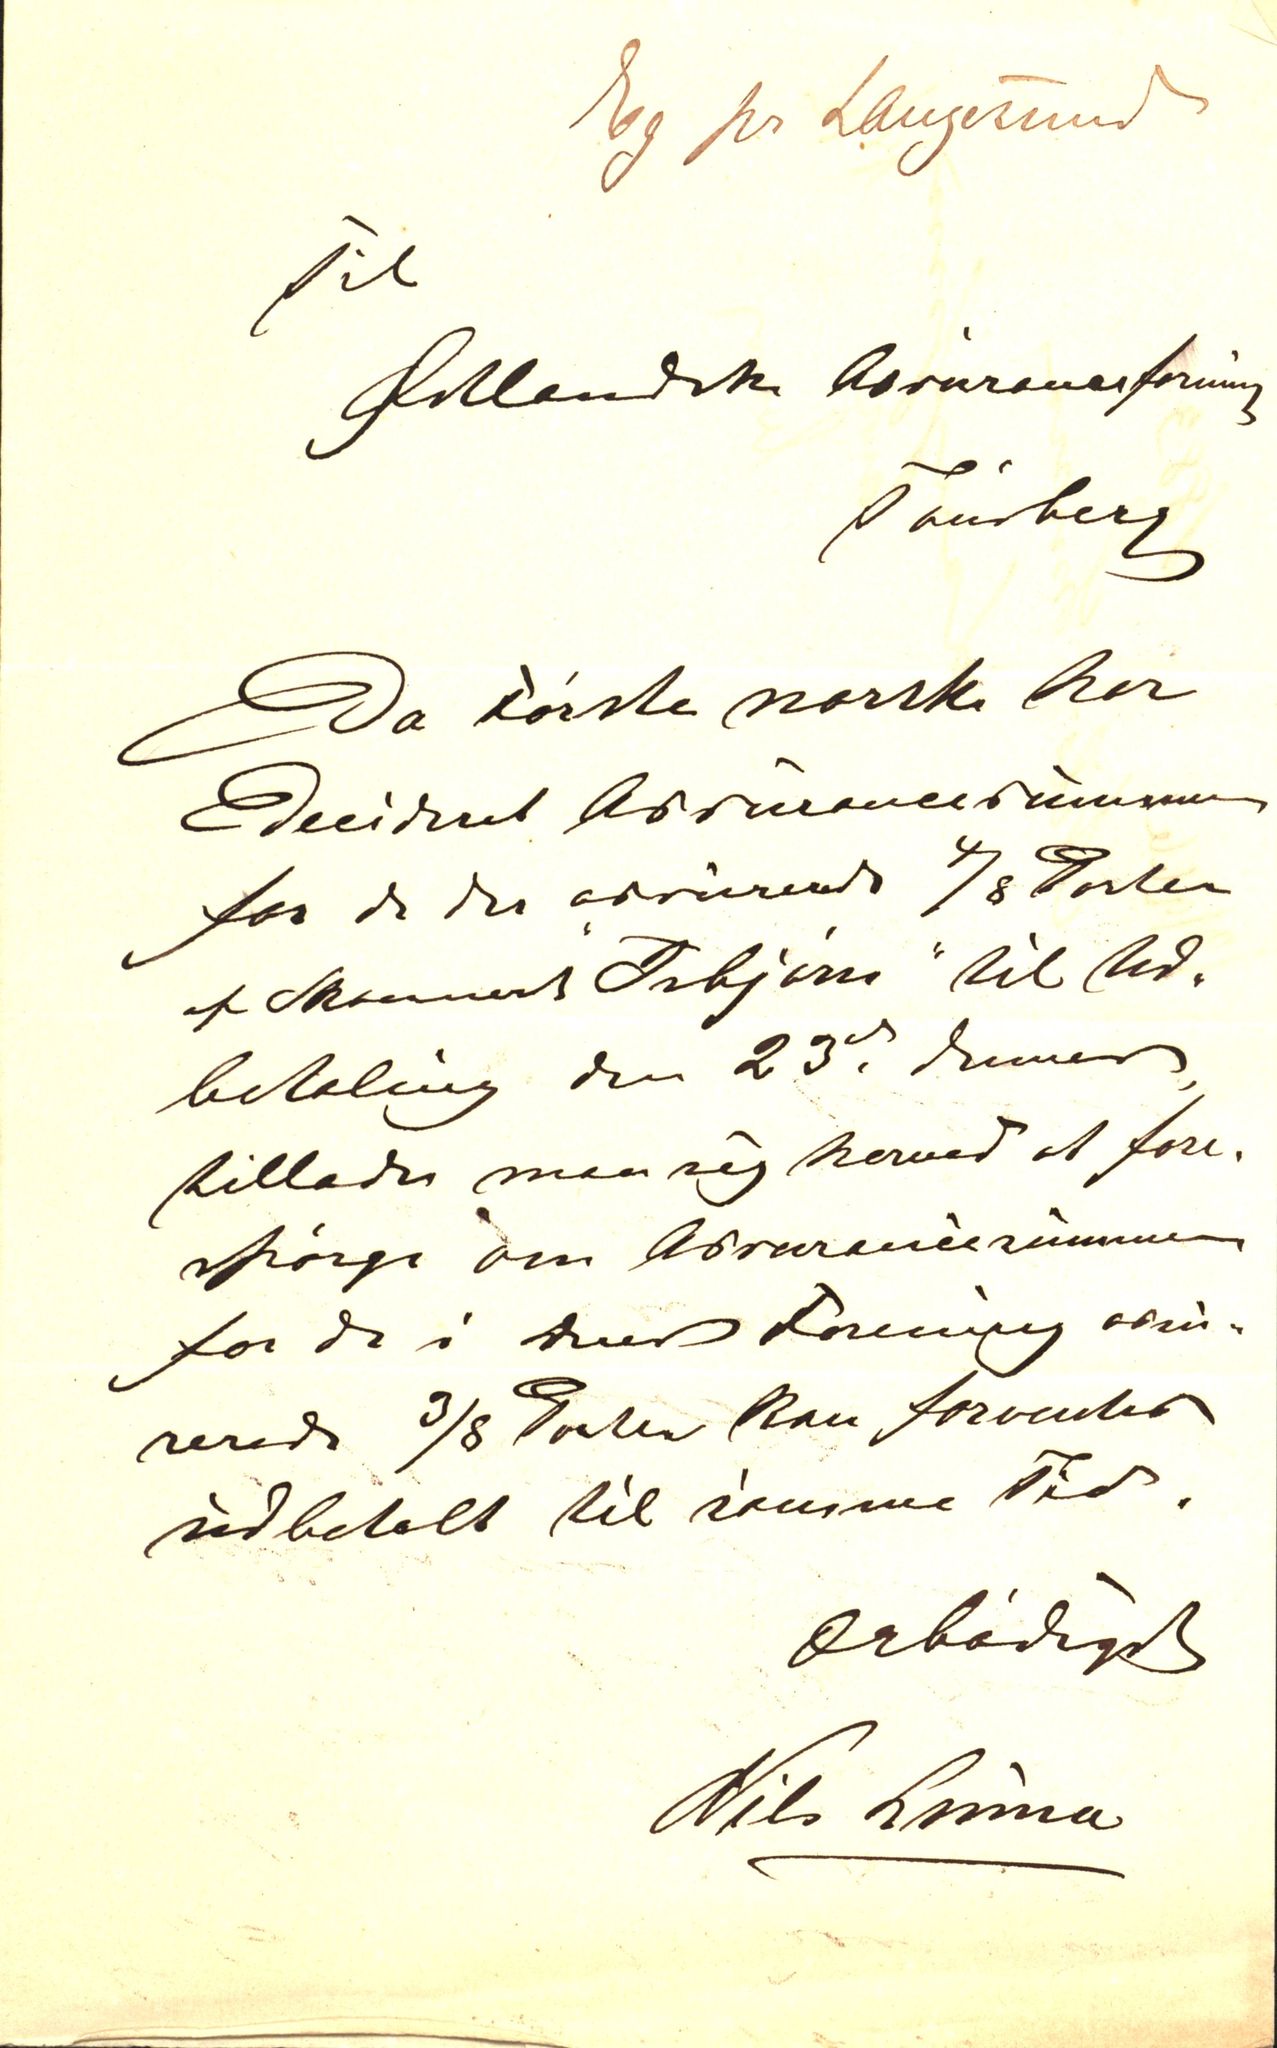 Eeg pr Langesund
Til
Østlandske Assuranceforening
Tønsberg
Da Første norske har
decideret Assurancesummen
for de der assurerede 4/8 Parter
af Skonnert "Isbjørn" til Ud-
betaling den 23d. dennes,
tillader man sig herved at fore-
spørge om Assurancesummen
for de i deres Forening assu-
rerede 3/8 Parter kan forventes
udbetalt til samme Tid.
Ærbødigst
Nils